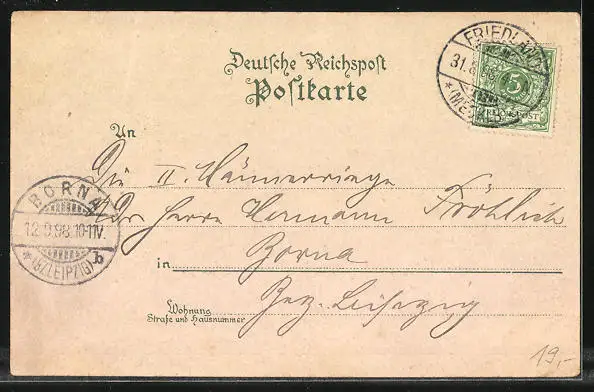 Deutsche Reichspost
Postkarte
FRIEDLAND
31.8.98
*(MECKLB.)
5
REICHSPOST
An
Die II. Männerriege
Herrn Hermann Fröhlich
BORNA
12.9.98.10-11V.
*(BZ.LEIPZIG) b
in Borna
Bez. Leipzig
Wohnung
Straße und Hausnummer
19,-